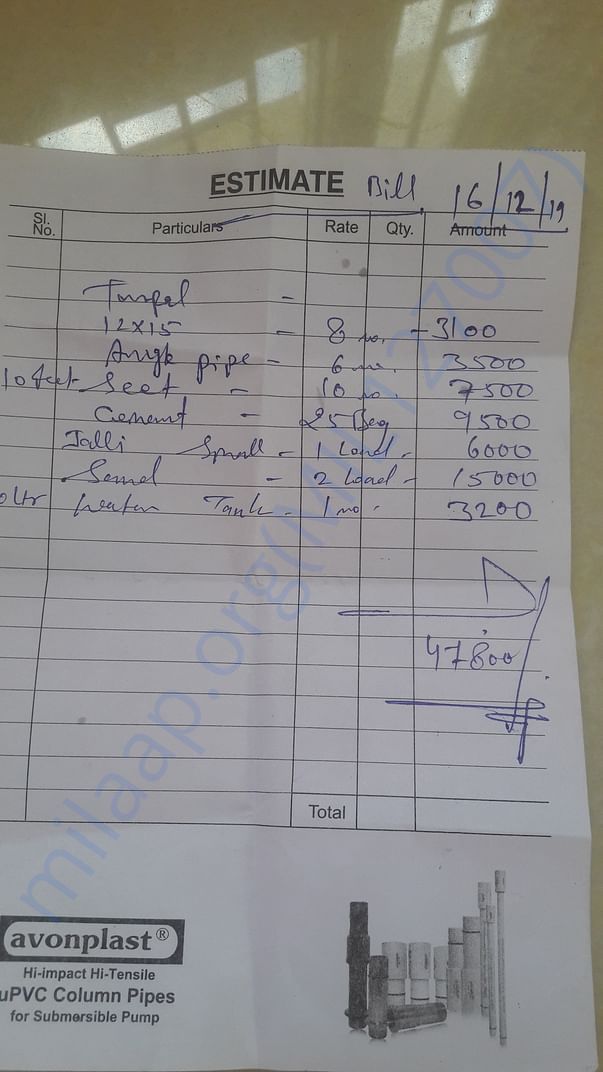 ESTIMATE Bill 16/12/19
Sl. No. Particulars Rate Qty. Amount
Tarpal -
12x15 - 8 no. - 3100
Angle pipe - 6 no. 3500
10 feet Seet - 10 no. 7500
Cement - 25 Beg 9500
Jalli Small - 1 Load - 6000
Send - 2 Load - 15000
oltr water Tank - 1 no. 3200
47800
Total
avonplast®
Hi-impact Hi-Tensile
uPVC Column Pipes
for Submersible Pump